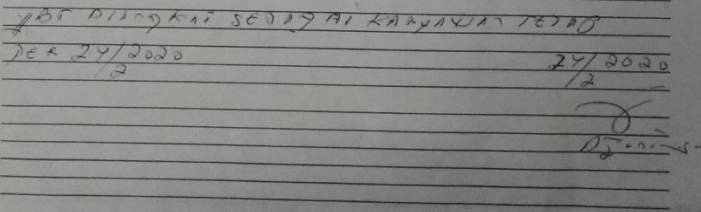 YBT DIANGKAT SEBAGAI KARYAWAN TETAP
PER 24/2 2020
24/2 2020